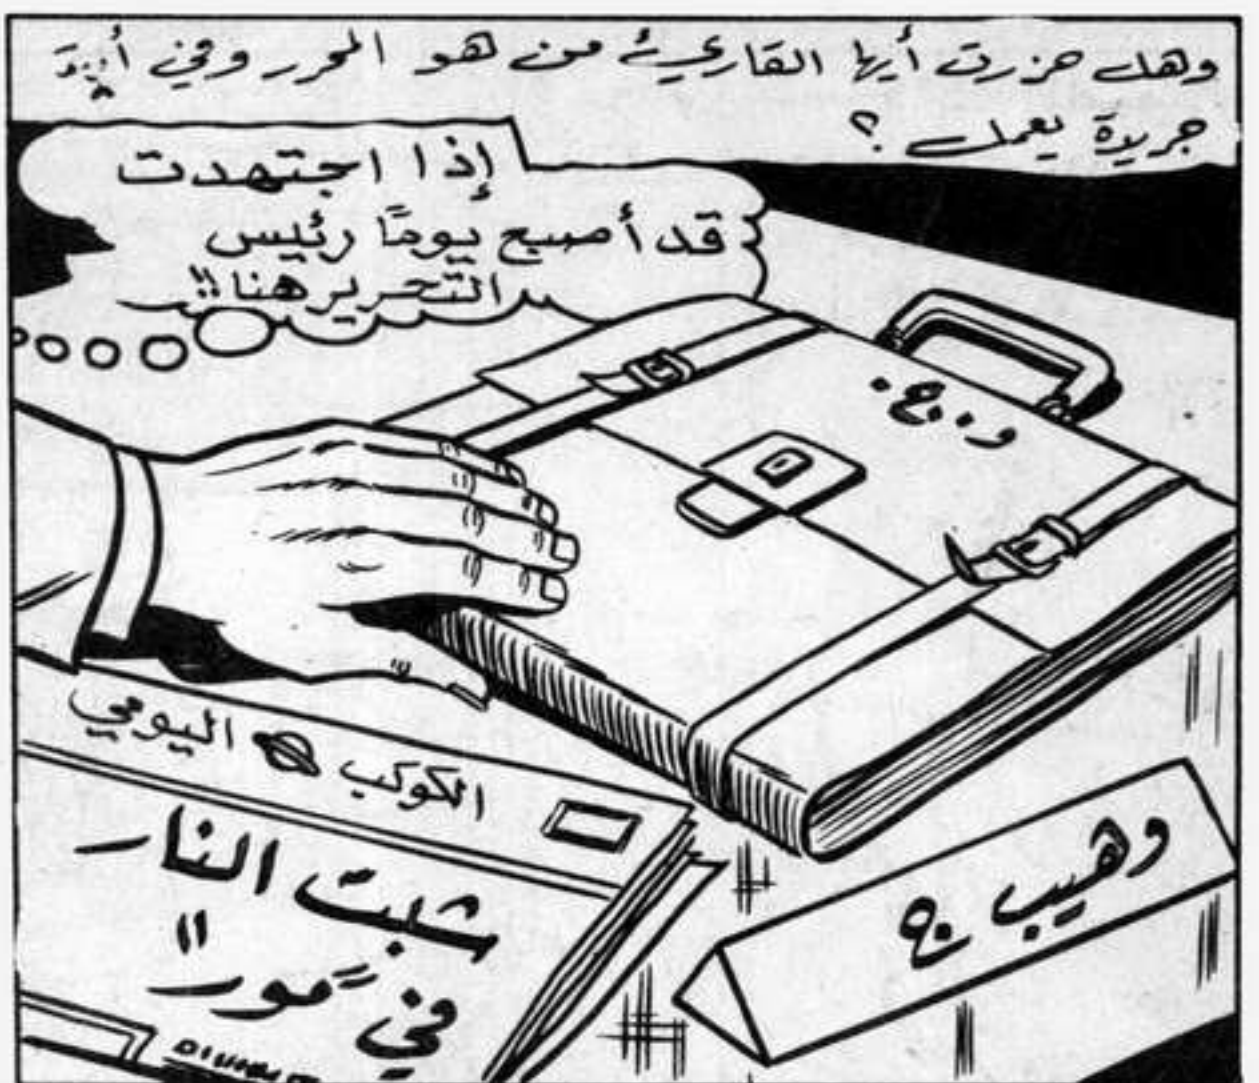 وهل حزرت أيها القارىء من هو المحرر وفي أية
جريدة يعمل ؟
إذا اجتهدت
قد أصبح يومًا رئيس
التحرير هنا !!
و . ج .
الكوكب اليومي
شبت النار
في تمور !!
وهيب ج